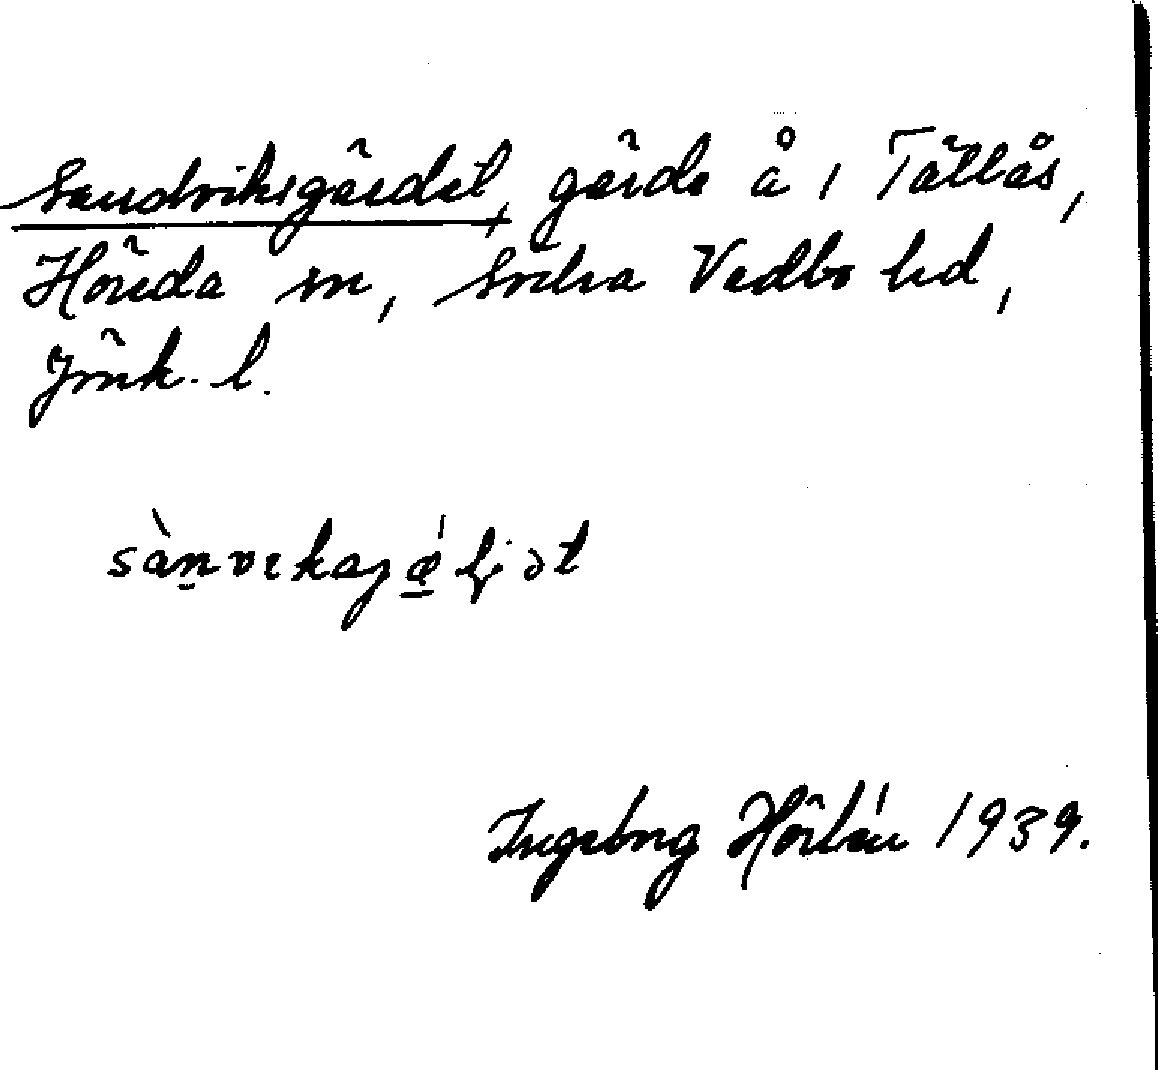 Sandviksgärdet, gärde å i Tällås,
Höreda sn, Södra Vedbo hd,
Jönk. l.
Ingeborg Hörlén 1939.